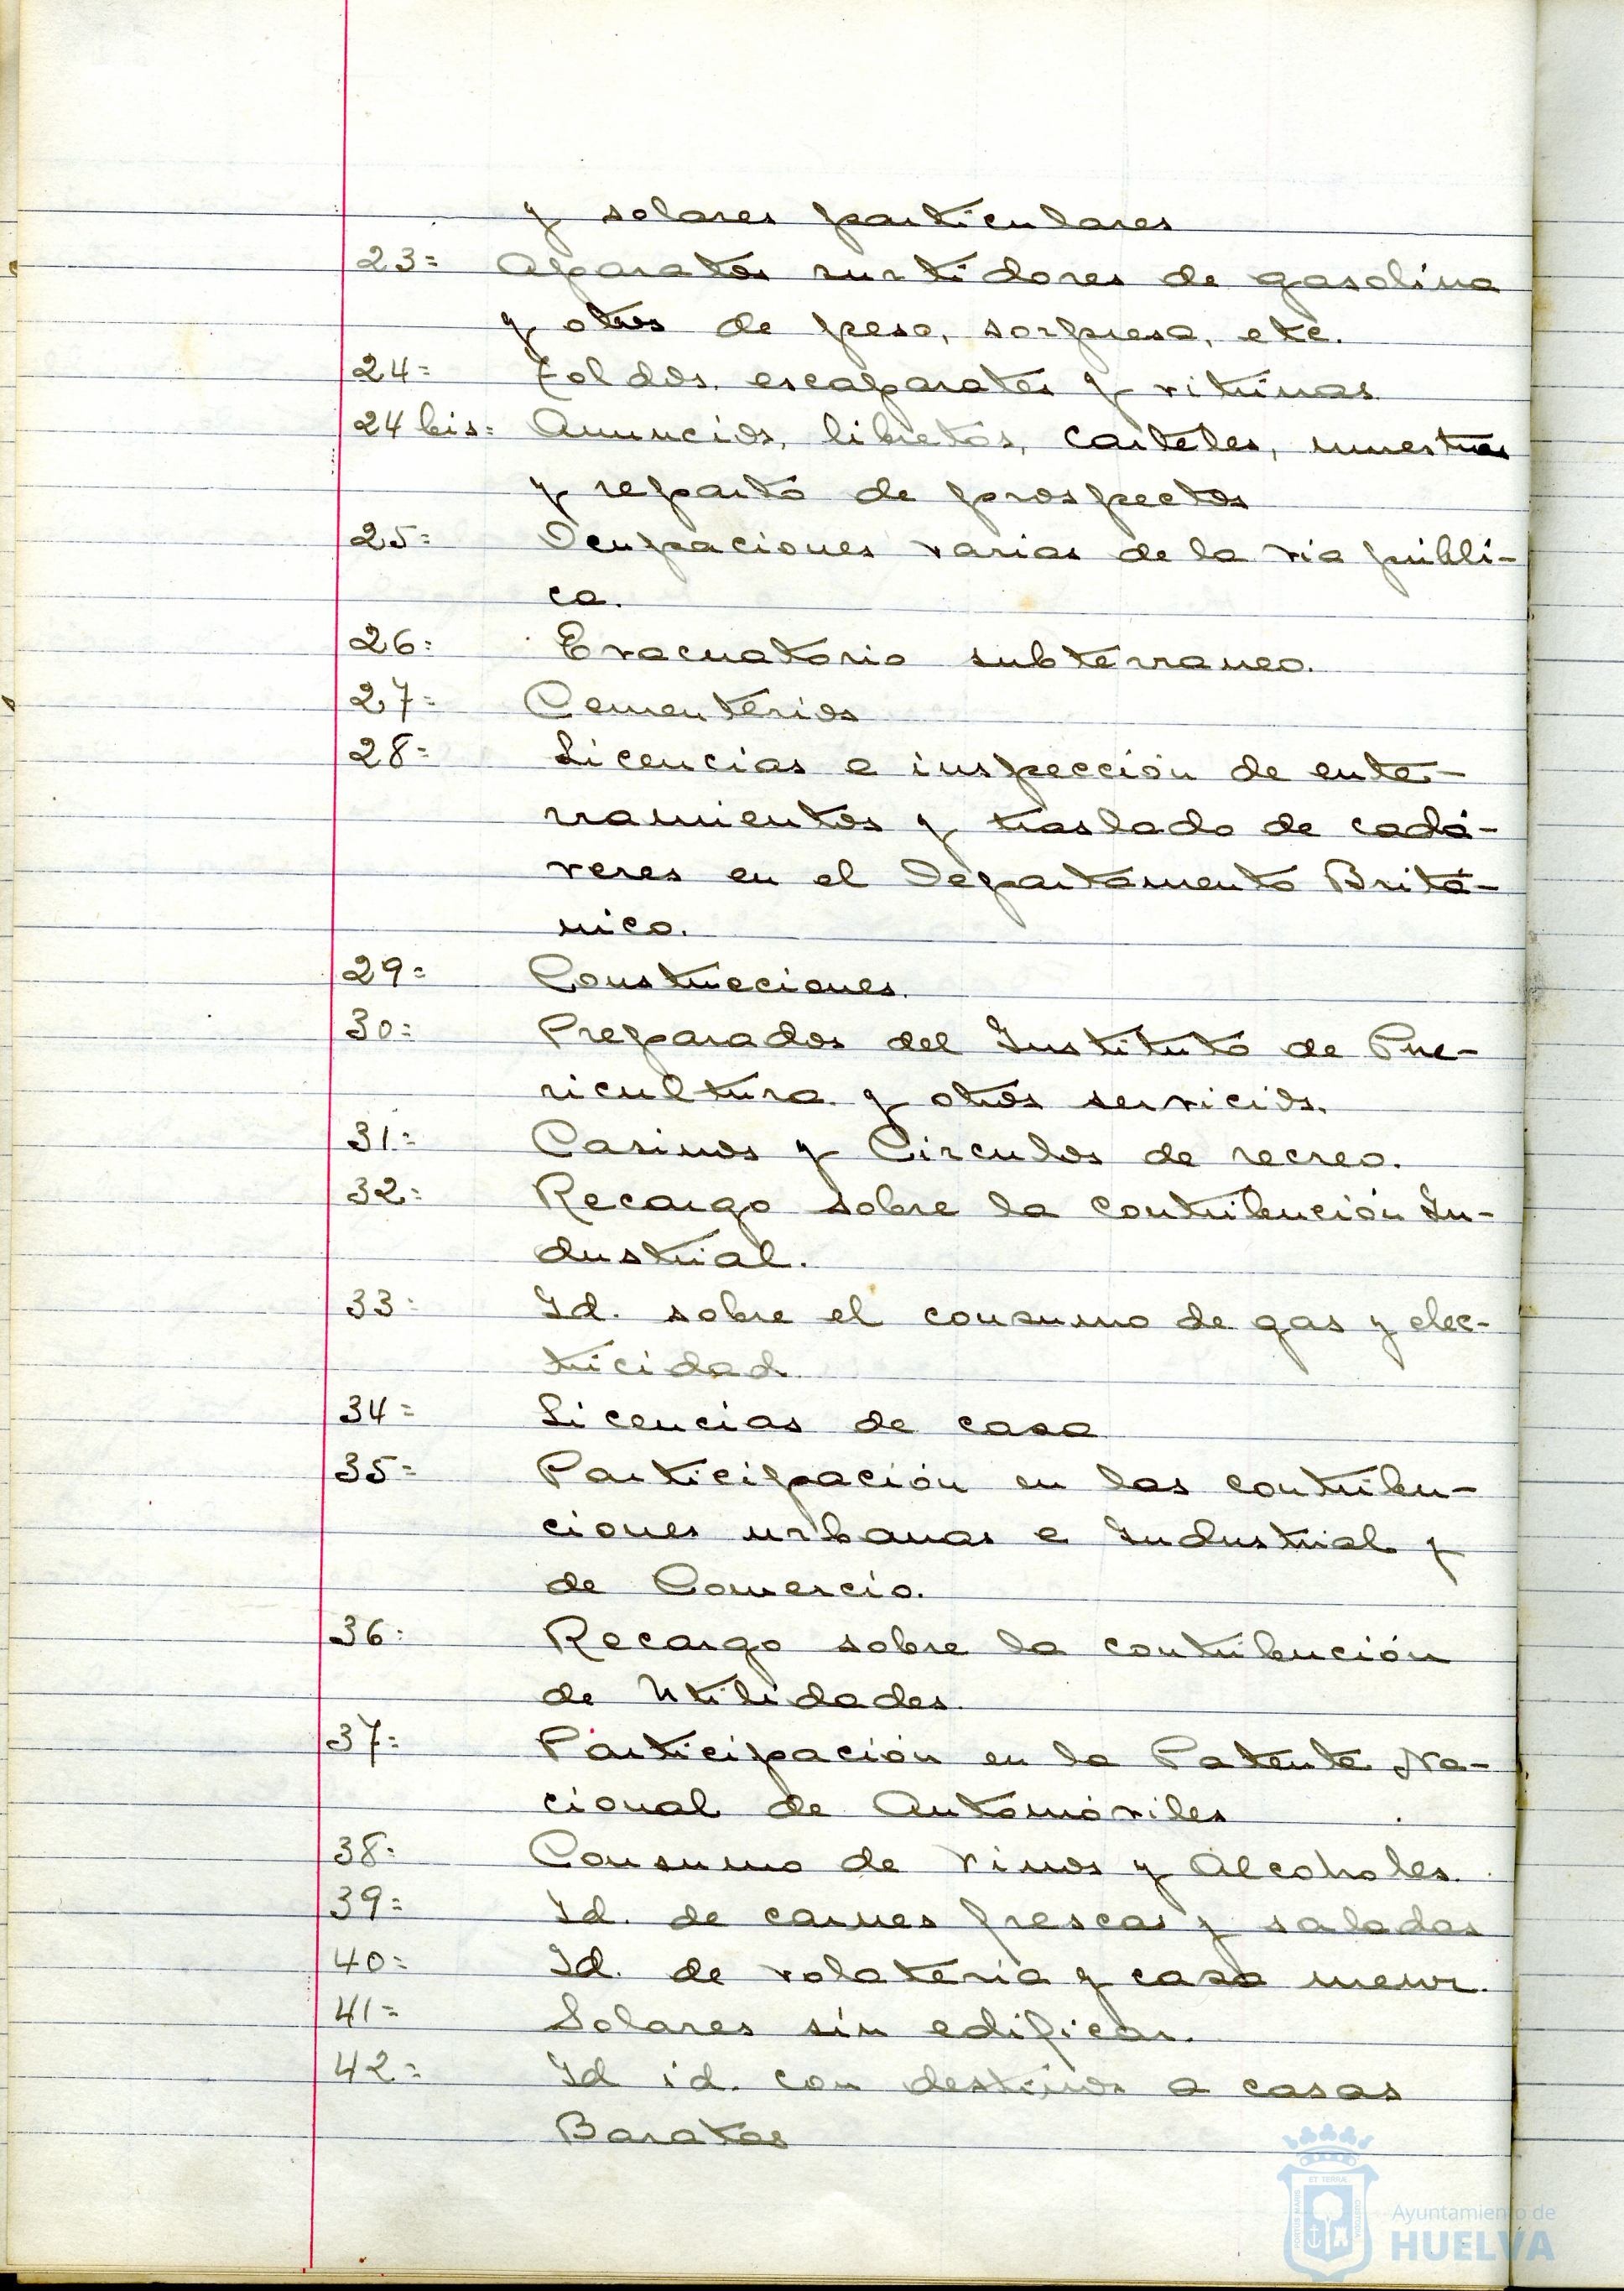 y solares particulares
23= Aparatos surtidores de gasolina
y otros de peso, sorpresa, etc.
24= Toldos, escaparates y vitrinas
24 bis= Anuncios, libretos, carteles, muestras
y reparto de prospectos
25= Ocupaciones varias de la vía públi-
ca.
26= Evacuatorio subterraneo.
27= Cementerios
28= Licencias e inspección de ente-
rramientos y traslado de cadá-
veres en el Departamento Britá-
nico.
29= Construcciones.
30= Preparados del Instituto de Pue-
ricultura y otros servicios.
31= Casinos y Circulos de recreo.
32= Recargo sobre la contribución In-
dustrial.
33= Id. sobre el consumo de gas y elec-
tricidad.
34= Licencias de caza
35= Participación en las contribu-
ciones urbanas e Industrial y
de Comercio.
36= Recargo sobre la contribución
de Utilidades.
37= Participación en la Patente Na-
cional de Automóviles
38= Consumo de Vinos y Alcoholes.
39= Id. de carnes frescas y saladas
40= Id. de volatería y caza menor.
41= Solares sin edificar.
42= Id id. con destinos a casas
Baratas
Ayuntamiento de
HUELVA